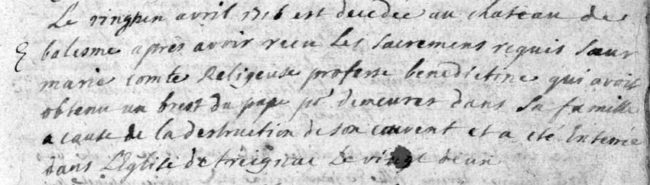 Le vingt un avril 1716 est decedée au chateau de
balesme apres avoir recu Les sacremens requis Sœur
marie comte Religieuse professe benedictine qui avoit
obtenu un bref du pape pr demeurer dans Sa famille
a cause de la destruction de son couvent et a eté Enterrée
dans L'Eglise de treignac Le vingt deux